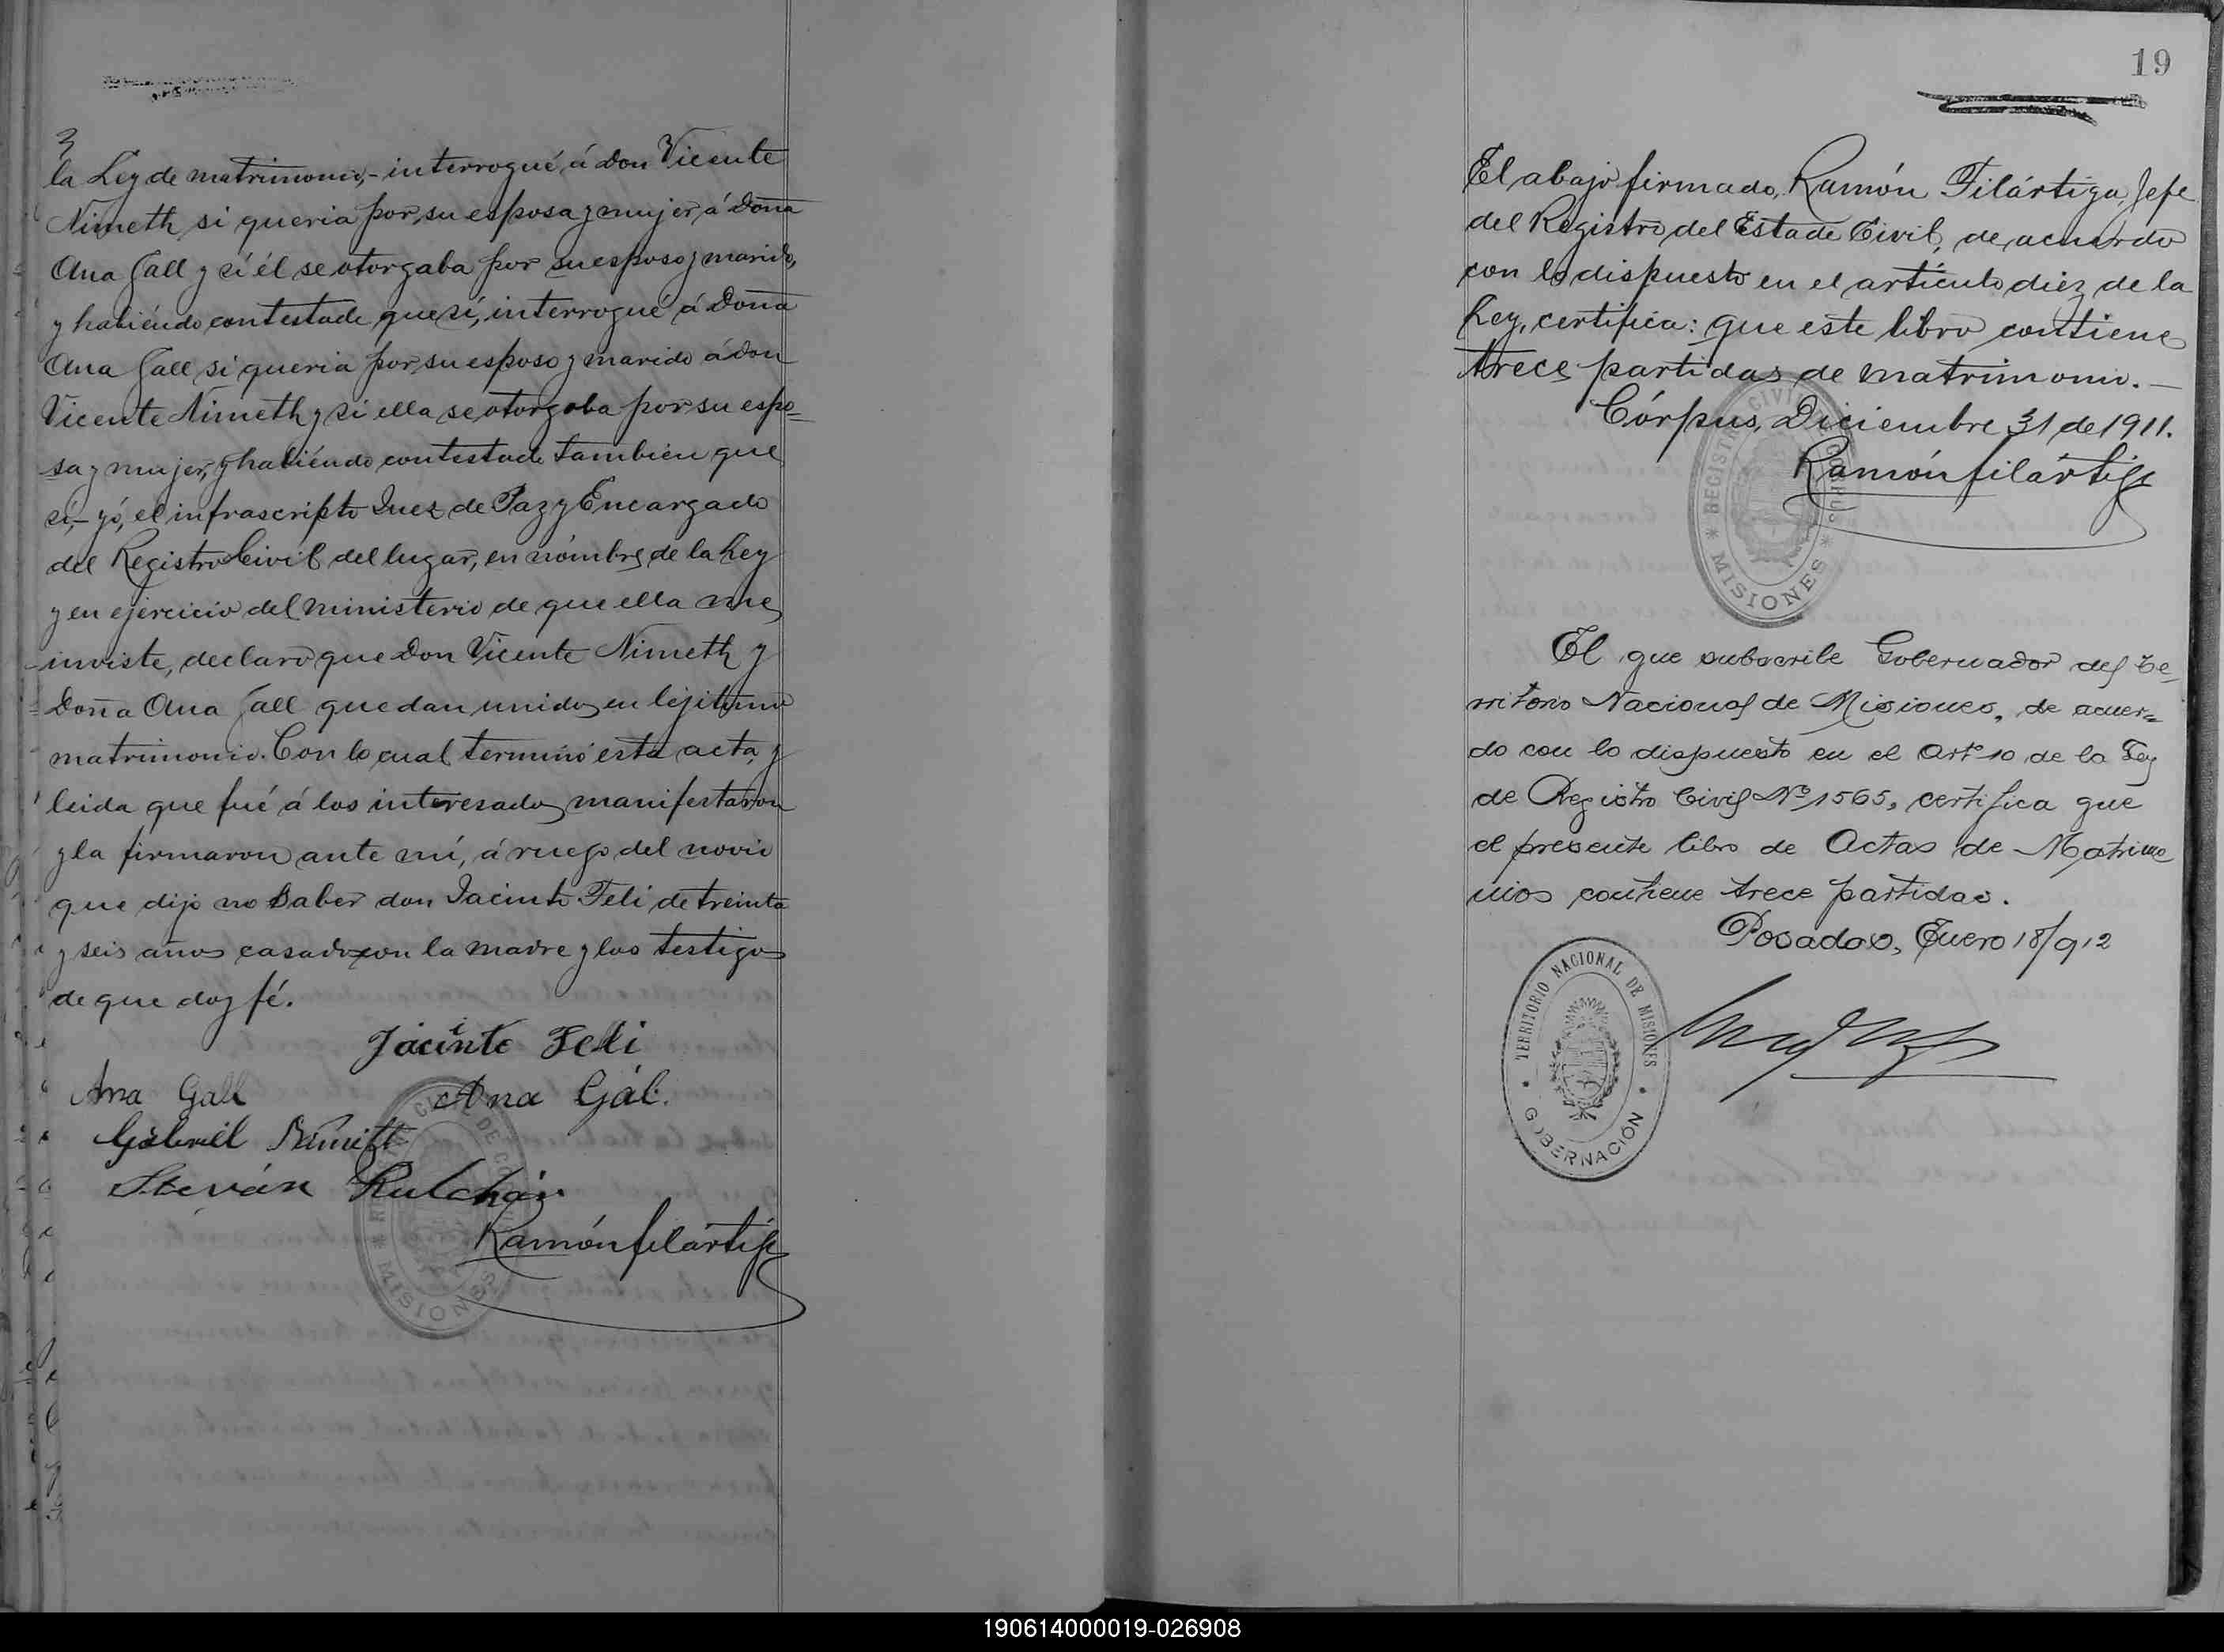 3
la Ley de matrimonio,- interrogué, á don Vicente
Nimeth si queria por su esposa y mujer, á Doña
Ana Gall y si él se otorgaba por su esposo y marido,
y habiéndo contestado que sí, interrogué á Doña
Ana Gall si queria por su esposo y marido á don
Vicente Nimeth y si ella se otorgaba por su espo=
sa y mujer, y habiéndo contestado tambien que
sí,- yó, el infrascripto Juez de Paz y Encargado
del Registro Civil del lugar, en nómbre de la Ley
y en ejercicio del ministerio de que ella me
inviste, declaro que Don Vicente Nimeth y
Doña Ana Gall quedan unidos en lejítimo
matrimonio. Con lo cual terminó esta acta, y
leida que fué á los interesados manifestaron
y la firmaron ante mí, á ruego del novio
que dijo no saber don Jacinto Feli de treinta
y seis años casado con la madre y los testigos
de que doy fé.
Jacinto Feli
Ana Gall
Ana Gál.
Gabriel
Steván
Ramón filártiga
REGISTRO CIVIL DE CORPUS
* MISIONES *
19
El abajo firmado, Ramón Filártiga, Jefe
del Registro del Estado Civil, de acuerdo
con lo dispuesto en el artículo diéz de la
Ley, certifica: que este libro contiene
trece partidas de matrimonio.—
Córpus, Diciembre 31 de 1911.
Ramón filártiga
REGISTRO CIVIL CORPUS
* MISIONES *
El que subscribe Gobernador del Te-
rritorio Nacional de Misiones, de acuer=
do con lo dispuesto en el Artº 10 de la Ley
de Registro Civil Nº 1565, certifica que
el presente libro de Actas de Matrimo
nios contiene trece partidas.
Posadas, Enero 18/912
TERRITORIO NACIONAL DE MISIONES
* GOBERNACIÓN *
190614000019-026908